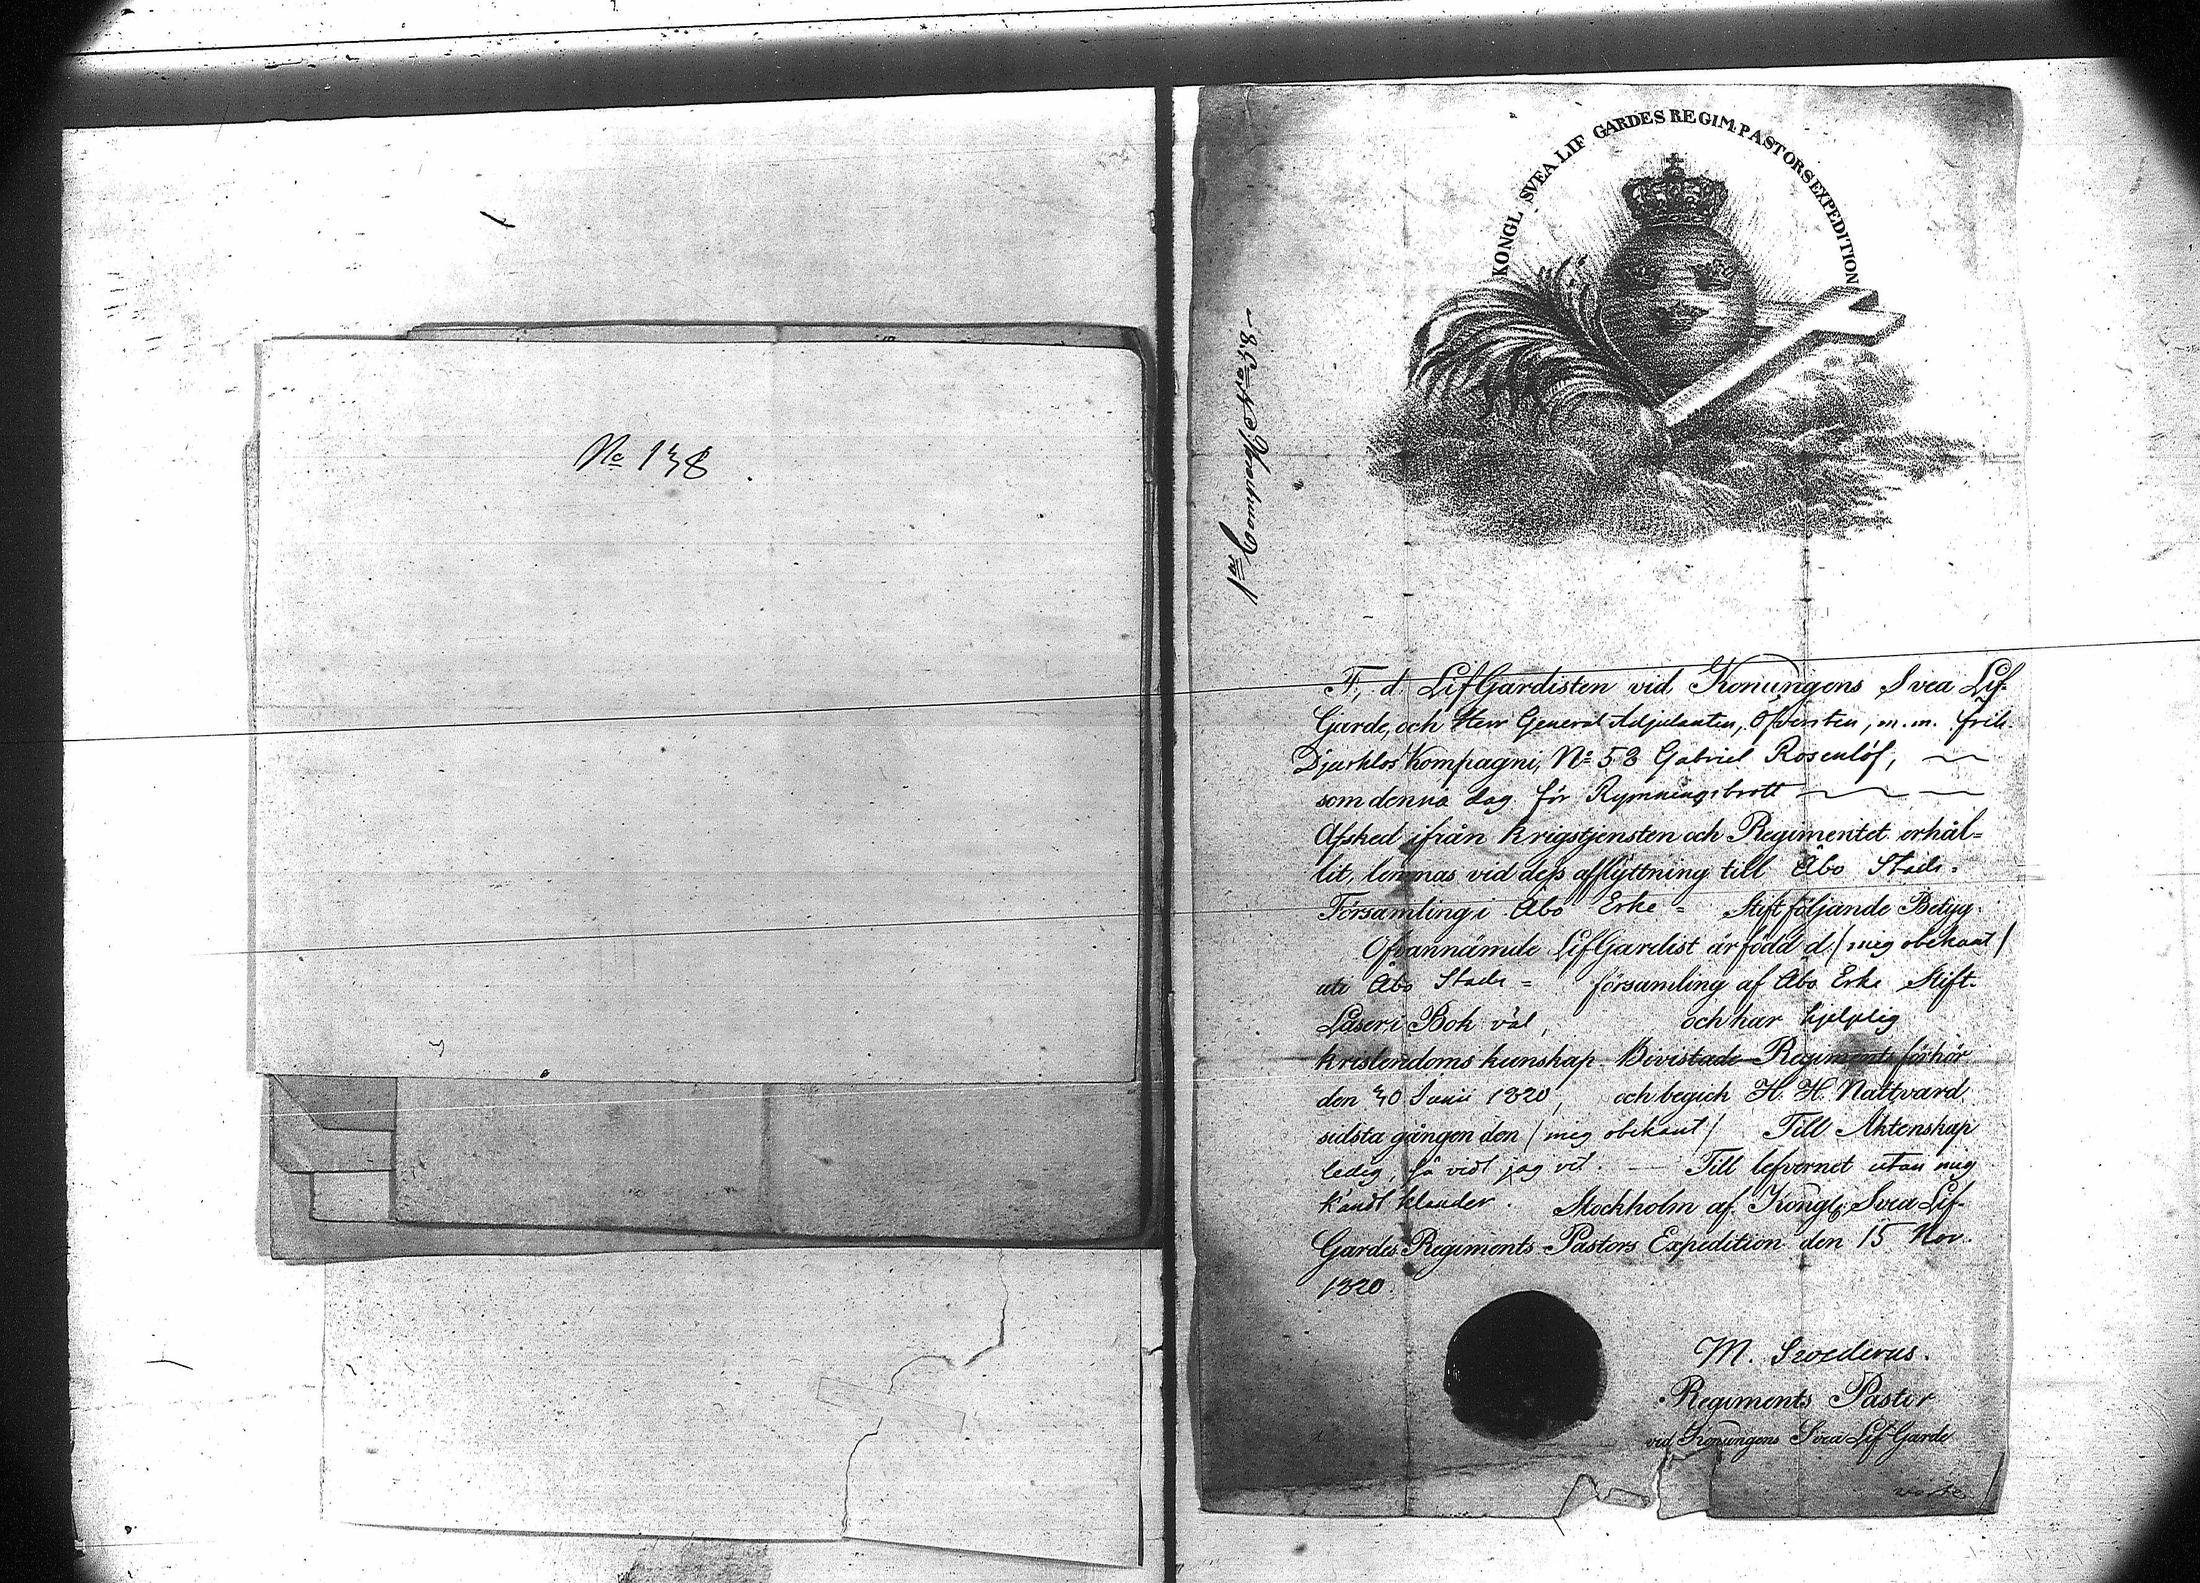 No 138.
KONGL SVEA LIF GARDES REGIM. PASTORSEXPEDITION
F, d. LifGardisten vid Konungens Svea Lif-
Garde, och Herr General Adjutanten, Öfversten, m.m. frih.
Djurklos Kompagni, No 58 Gabriel Rosenlöf,
som denna dag för Rymningsbrott
Afsked ifrån Krigstjensten och Regimentet erhål=
lit, lemnas vid dess afflyttning till Åbo Stads=
Församling i Åbo Erke= Stift följande Betyg.
Ofvannämde LifGardist är född d. / mig obekant /
uti Åbo Stads= församling af Åbo Erke Stift.
Läser i Bok väl, och har hjelplig
kristendoms kunskap. Bivistade Regiments förhör
den 30 Junii 1820, och begick H. H. Nattvard
sidsta gången den / mig obekant / Till Äktenskap
ledig, så vidt jag vet. Till lefvernet utan mig
kändt klander. Stockholm af Kongl. Svea Lif-
Gardes Regiments-Pastors Expedition den 15 Nov.
1820.
M. Swederus.
Regiments Pastor
vid Konungens Svea Lif Garde